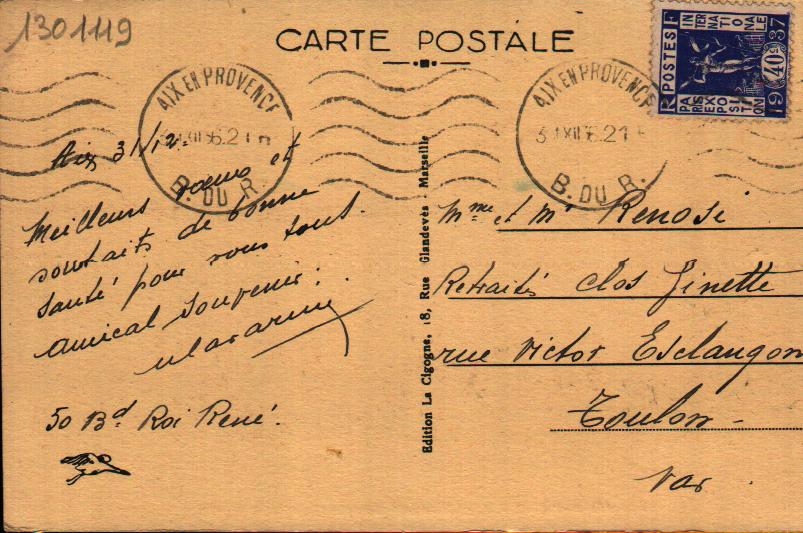 1301119
CARTE POSTALE
POSTES RF
INTERNATIONALE
PARIS EXPOSITION
1937
40c
AIX EN PROVENCE
B. DU R.
AIX EN PROVENCE
B. DU R.
Aix 31/12.
Meilleurs voeux et
souhaits de bonne
santé pour vous tous.
amical souvenir:
50 Bd. Roi René.
Edition La Cigogne, 18, Rue Glandevès - Marseille
Mme et Mr Renosi
Retraités Clos Ginette
rue Victor Esclangon
Toulon -
Var